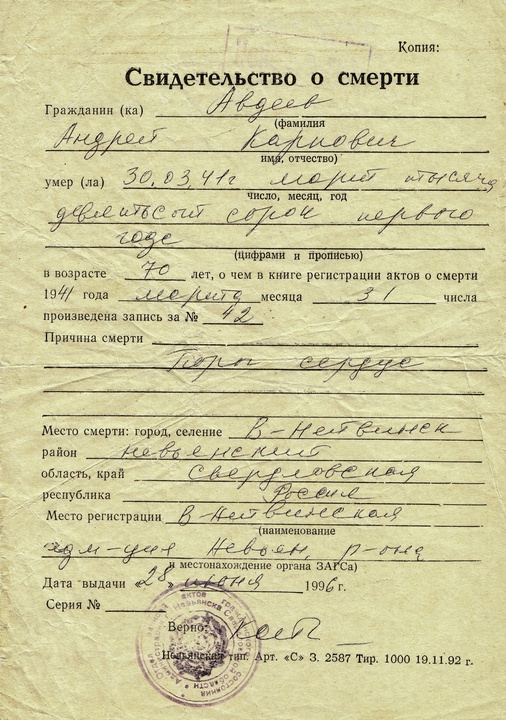 Копия:
Свидетельство о смерти
Гражданин (ка) Авдеев
(фамилия
Андрей Карпович
имя, отчество)
умер (ла) 30.03.41г март тысяча
число, месяц, год
девятьсот сорок первого
года
(цифрами и прописью)
в возрасте 70 лет, о чем в книге регистрации актов о смерти
1941 года марта месяца 31 числа
произведена запись за № 42
Причина смерти
Порок сердца
Место смерти: город, селение В-Нейвинск
район Невьянский
область, край Свердловская
республика Россия
Место регистрации В-Нейвинская
(наименование
адм-ция Невьян. р-она
и местонахождение органа ЗАГСа)
Дата выдачи «28» июня 1996 г.
Серия №
Верно:
Невьянская тип. Арт. «С» З. 2587 Тир. 1000 19.11.92 г.